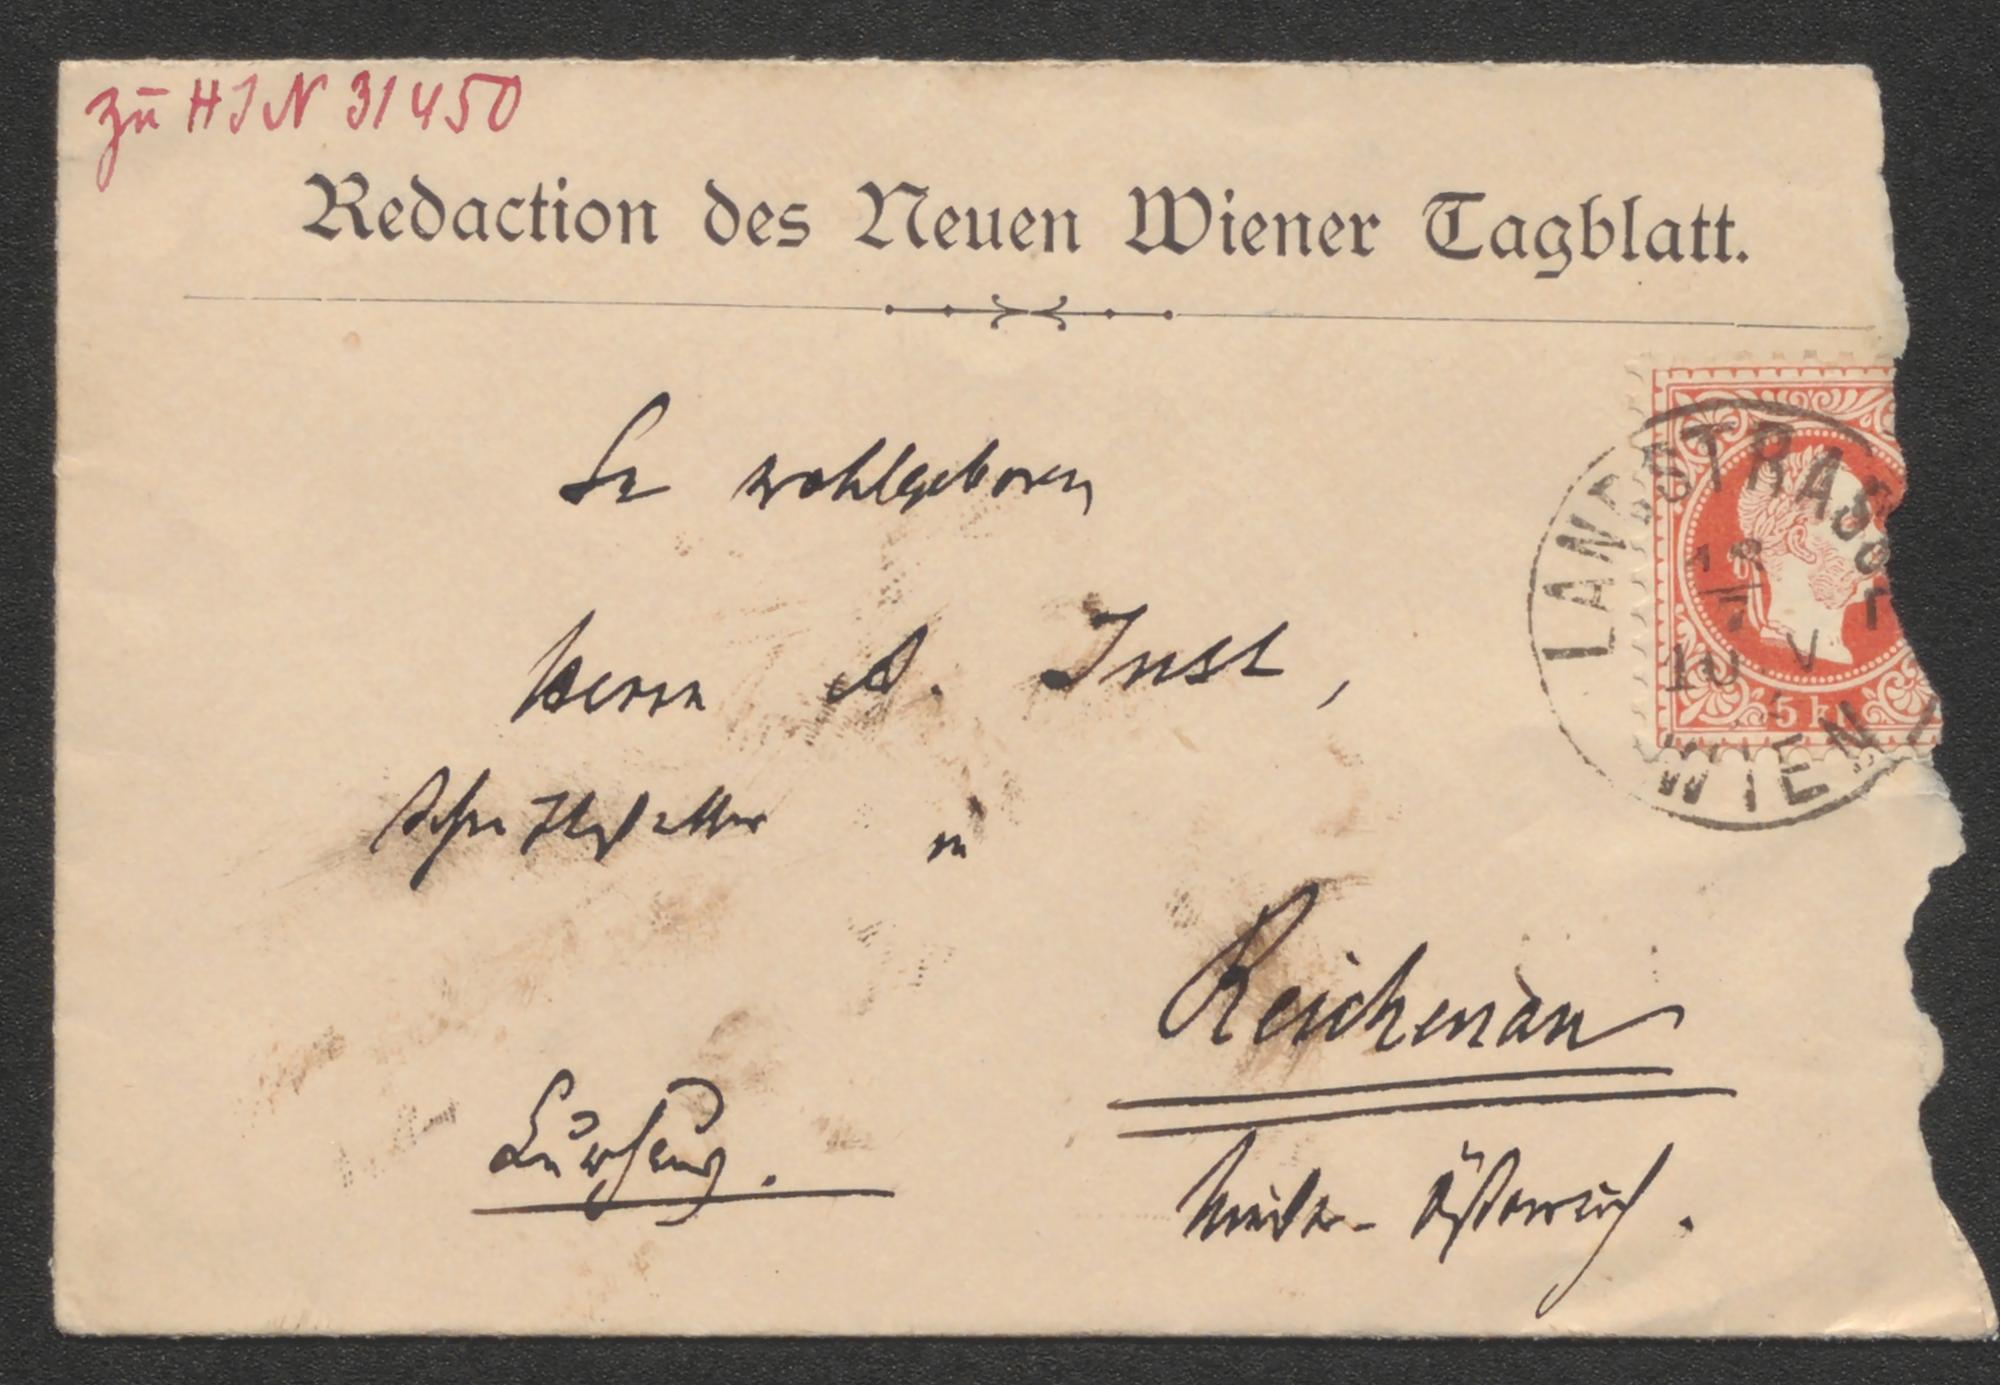 zu HIN 31450
Redaction des Neuen Wiener Tagblatt.
Sr wohlgeboren
Herrn A. Just,
Schriftsteller in
Reichenau
Curhaus.
Nieder-Österreich.
LANDSTRASS
18
7
10 V
5 kr
WIEN